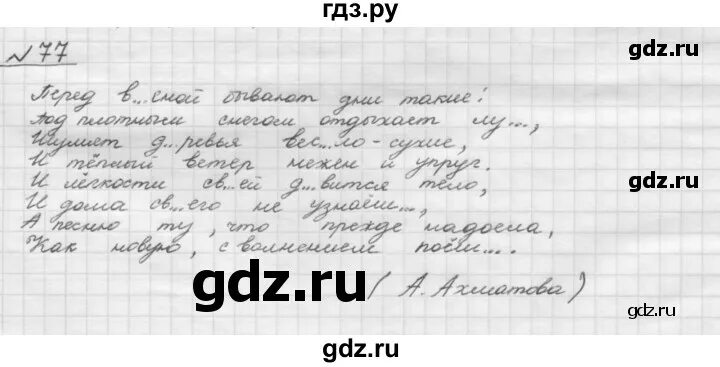 гдз.ру
№ 77
gdz.ru
Перед в...сной бывают дни такие:
Под плотным снегом отдыхает лу...,
Шумят д...ревья вес...ло-сухие,
И тёплый ветер нежен и упруг.
И лёгкости св...ей д...вится тело,
И дома св...его не узнаёш...,
А песню ту, что прежде надоела,
Как новую, с волнением поёш....
gdz.ru
(А. Ахматова)
gdz.ru
gdz.ru